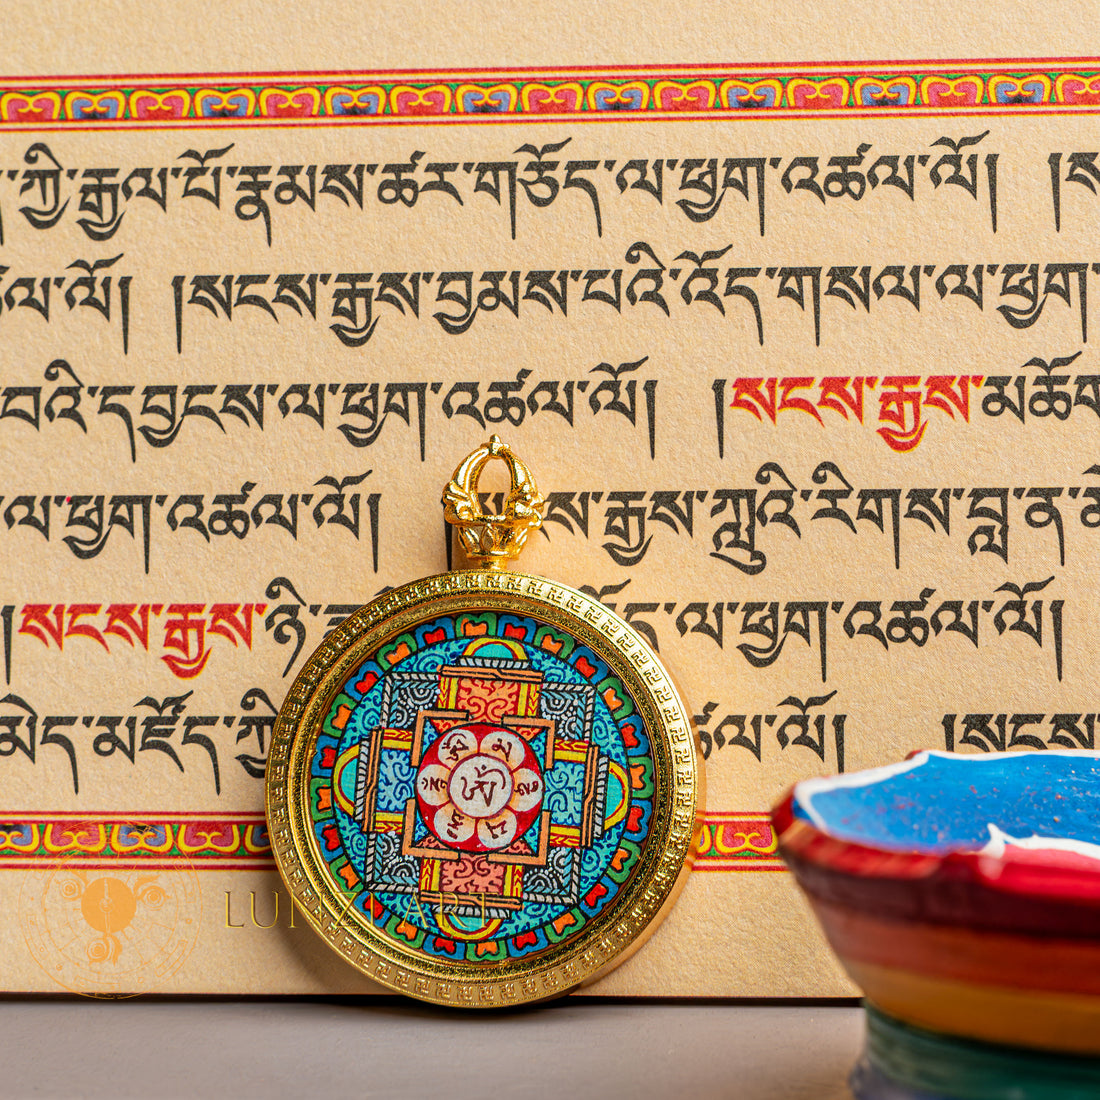 ཀྱི་རྒྱལ་པོ་རྣམས་ཚར་གཅོད་ལ་ཕྱག་འཚལ་ལོ། །ས
ཚལ་ལོ། །སངས་རྒྱས་བྱམས་པའི་འོད་གསལ་ལ་ཕྱག་
བའི་དབྱངས་ལ་ཕྱག་འཚལ་ལོ། །སངས་རྒྱས་མཆོག
ལ་ཕྱག་འཚལ་ལོ། །སངས་རྒྱས་ཀླུའི་རིགས་བླ་ན་མེ
།སངས་རྒྱས་ཉི་ འོད་ལ་ཕྱག་འཚལ་ལོ།
མེད་མཛོད་ཀྱི འཚལ་ལོ། །སངས
ཨ
LUNZI ART